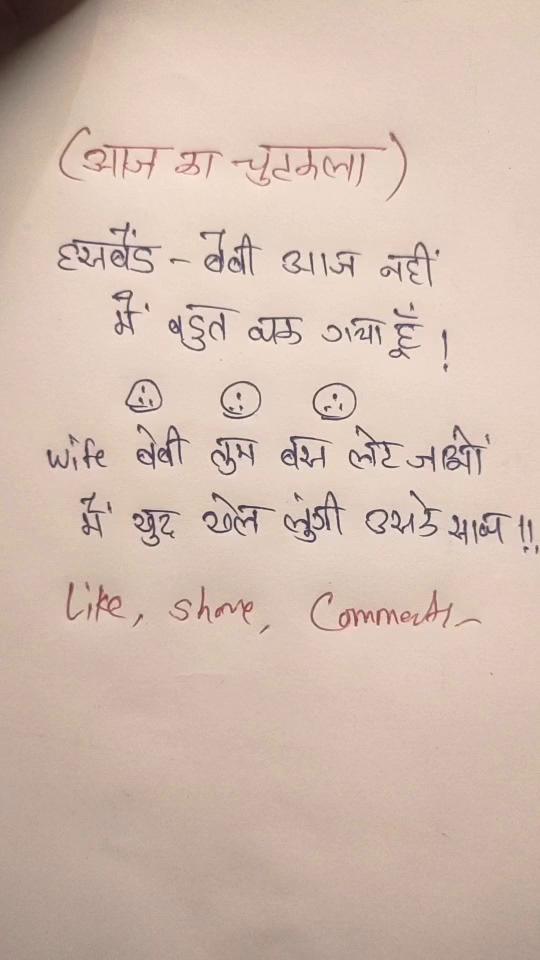 (आज का चुटकला)
हसबैंड - बेबी आज नहीं
मैं बहुत थक गया हूँ !
wife बेबी तुम बस लेट जाओं
मैं खुद खेल लुंगी उसके साथ !!
Like, Share, Comments